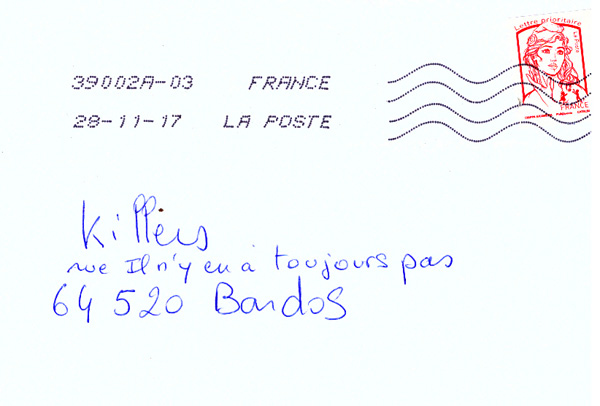 Lettre prioritaire
FRANCE
39002A-03 FRANCE
28-11-17 LA POSTE
Killers
rue Il n'y en à toujours pas
64 520 Bardos